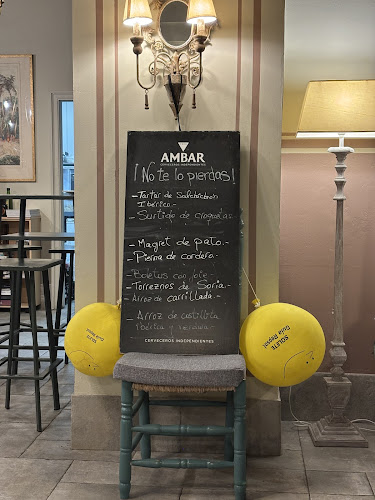 AMBAR
CERVECEROS INDEPENDIENTES
¡No te lo pierdas!
- Tartar de Salchichón
Ibérico.-
- Surtido de croquetas
- Magret de pato.-
- Pierna de cordero.-
- Boletus con foie.-
- Torreznos de Soria.-
- Arroz de carrillada.-
- Arroz de costilla
Ibérica y verdura
CERVECEROS INDEPENDIENTES
SOLETE
Guía Repsol
SOLETE
Guía Repsol